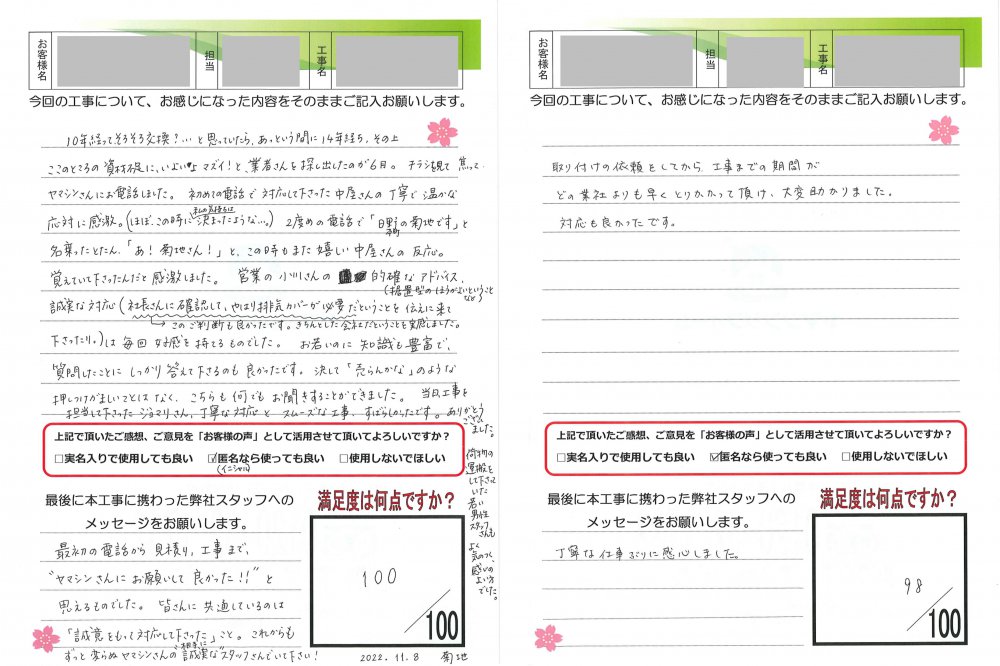 お客様名
担当
工事名
今回の工事について、お感じになった内容をそのままご記入お願いします。
10年経ってそろそろ交換?…と思っていたら、あっという間に14年経ち、その上
ここのところの資材不足に、いよいよマズイ!と、業者さんを探し出したのが6日。チラシ観て焦って、
ヤマシンさんにお電話しました。初めての電話で対応して下さった中屋さんの丁寧で温かな
応対に感激。(ほぼ、この時に私の気持ちは決まったような…。) 2度めの電話で「日野市の菊地です」と
名乗ったとたん、「あ!菊地さん!」と、この時もまた嬉しい中屋さんの反応。
覚えていて下さったんだと感激しました。営業の小川さんの的確なアドバイス、
(据置型のほうがよいということなど)
誠実な対応(社長さんに確認して、やはり排気カバーが必要だということを伝えに来て
→このご判断も良かったです。きちんとした会社だということを実感しました。
下さったり。)は毎回好感を持てるものでした。お若いのに知識も豊富で、
質問したことにしっかり答えて下さるのも良かったです。決して「売らんかな」のような
押しつけがましいことはなく、こちらも何でもお聞きすることができました。当日、工事を
担当して下さったジョマリさん、丁寧な対応とスムーズな工事、すばらしかったです。ありがとう
ございました。
荷物の
運搬を
して下さって
いた
若い
男性
スタッフ
さんも
よく
気のつく、
感じの
よい方
でした。
上記で頂いたご感想、ご意見を「お客様の声」として活用させて頂いてよろしいですか?
□実名入りで使用しても良い ☑匿名なら使っても良い □使用しないでほしい
(イニシャル)
最後に本工事に携わった弊社スタッフへの
メッセージをお願いします。
最初の電話から見積り、工事まで、
"ヤマシンさんにお願いして良かった!!"と
思えるものでした。皆さんに共通しているのは
「誠意をもって対応して下さった」こと。これからも
ずっと変らぬヤマシンさんの"誠実な"スタッフさんでいて下さい!
満足度は何点ですか?
100
/100
2022.11.8 菊地
お客様名
担当
工事名
今回の工事について、お感じになった内容をそのままご記入お願いします。
取り付けの依頼をしてから、工事までの期間が
どの業社よりも早くとりかかって頂け、大変助かりました。
対応も良かったです。
上記で頂いたご感想、ご意見を「お客様の声」として活用させて頂いてよろしいですか?
□実名入りで使用しても良い ☑匿名なら使っても良い □使用しないでほしい
最後に本工事に携わった弊社スタッフへの
メッセージをお願いします。
丁寧な仕事ぶりに感心しました。
満足度は何点ですか?
98
/100